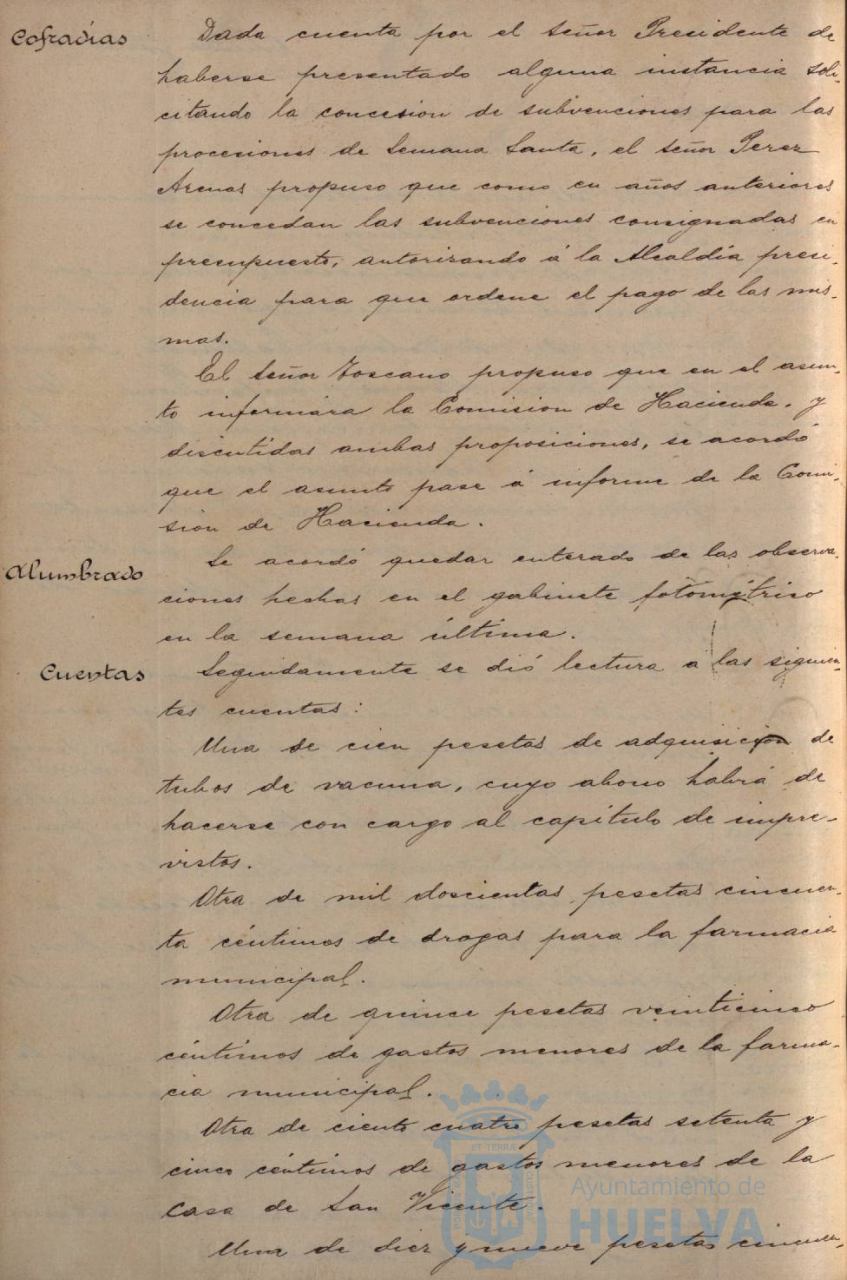 Cofradias
Dada cuenta por el señor Presidente de
haberse presentado alguna instancia soli-
citando la concesion de subvenciones para las
procesiones de Semana Santa, el señor Perez
Arenas propuso que como en años anteriores
se concedan las subvenciones consignadas en
presupuesto, autorizando á la Alcaldía presi-
dencia para que ordene el pago de las mis-
mas.
El señor Toscano propuso que en el asun-
to informára la Comision de Hacienda, y
discutidas ambas proposiciones, se acordó
que el asunto pase á informe de la Comi-
sion de Hacienda.
Alumbrado
Se acordó quedar enterado de las observa-
ciones hechas en el gabinete fotométrico
en la semana última.
Cuentas
Seguidamente se dió lectura a las siguien-
tes cuentas:
Una de cien pesetas de adquisicion de
tubos de vacuna, cuyo abono habrá de
hacerse con cargo al capítulo de impre-
vistos.
Otra de mil doscientas pesetas cincuen-
ta céntimos de drogas para la farmacia
municipal.
Otra de quince pesetas veinticinco
céntimos de gastos menores de la farma-
cia municipal.
Otra de ciento cuatro pesetas setenta y
cinco céntimos de gastos menores de la
Casa de San Vicente.
Una de diez y nueve pesetas cincuen-
ET TERRÆ
Ayuntamiento de
HUELVA